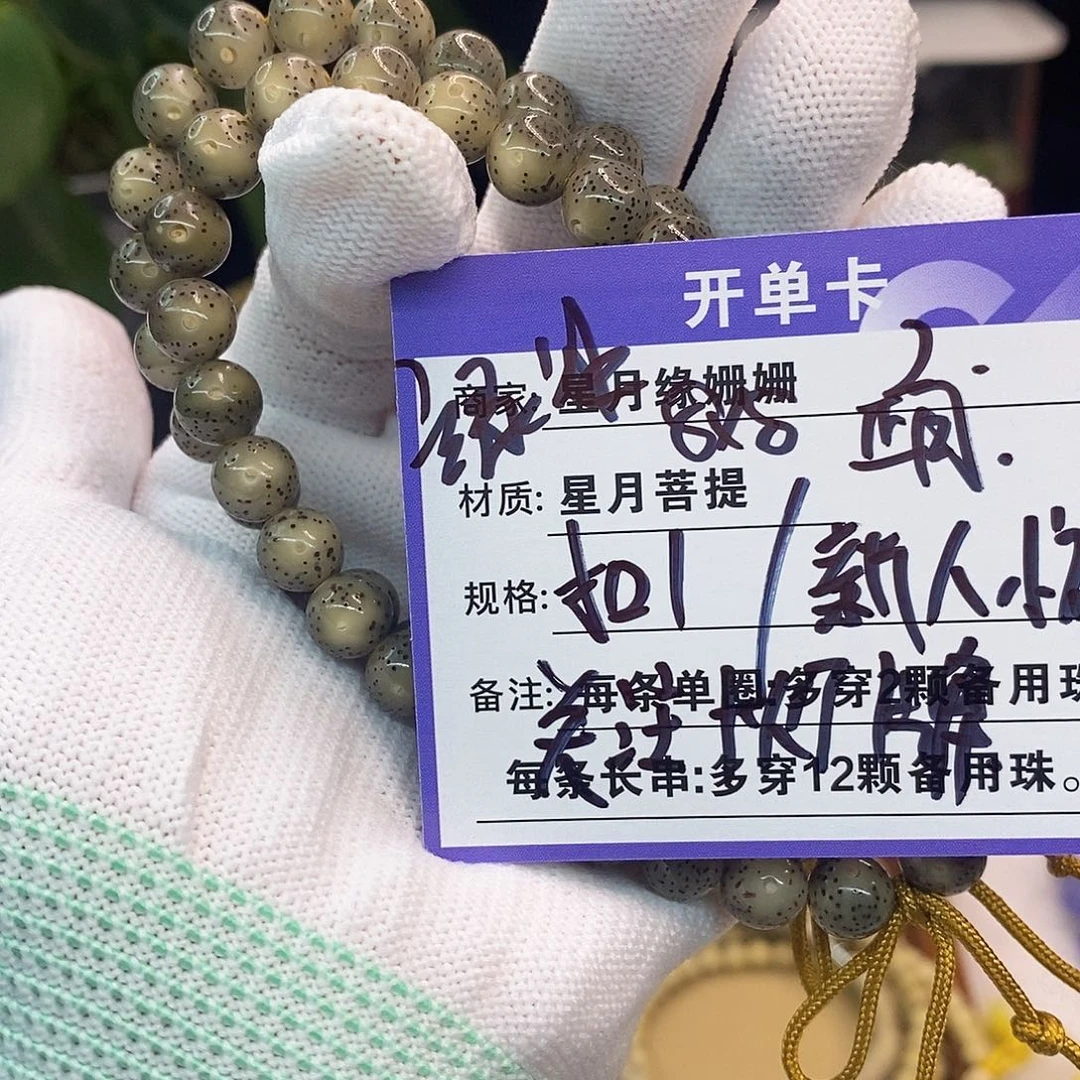 开单卡
商家: 星月缘姗姗
8x8
材质: 星月菩提
规格: 扣1 新人
备注: 每条单圈:多穿2颗备用珠
关注 牌
每条长串:多穿12颗备用珠。